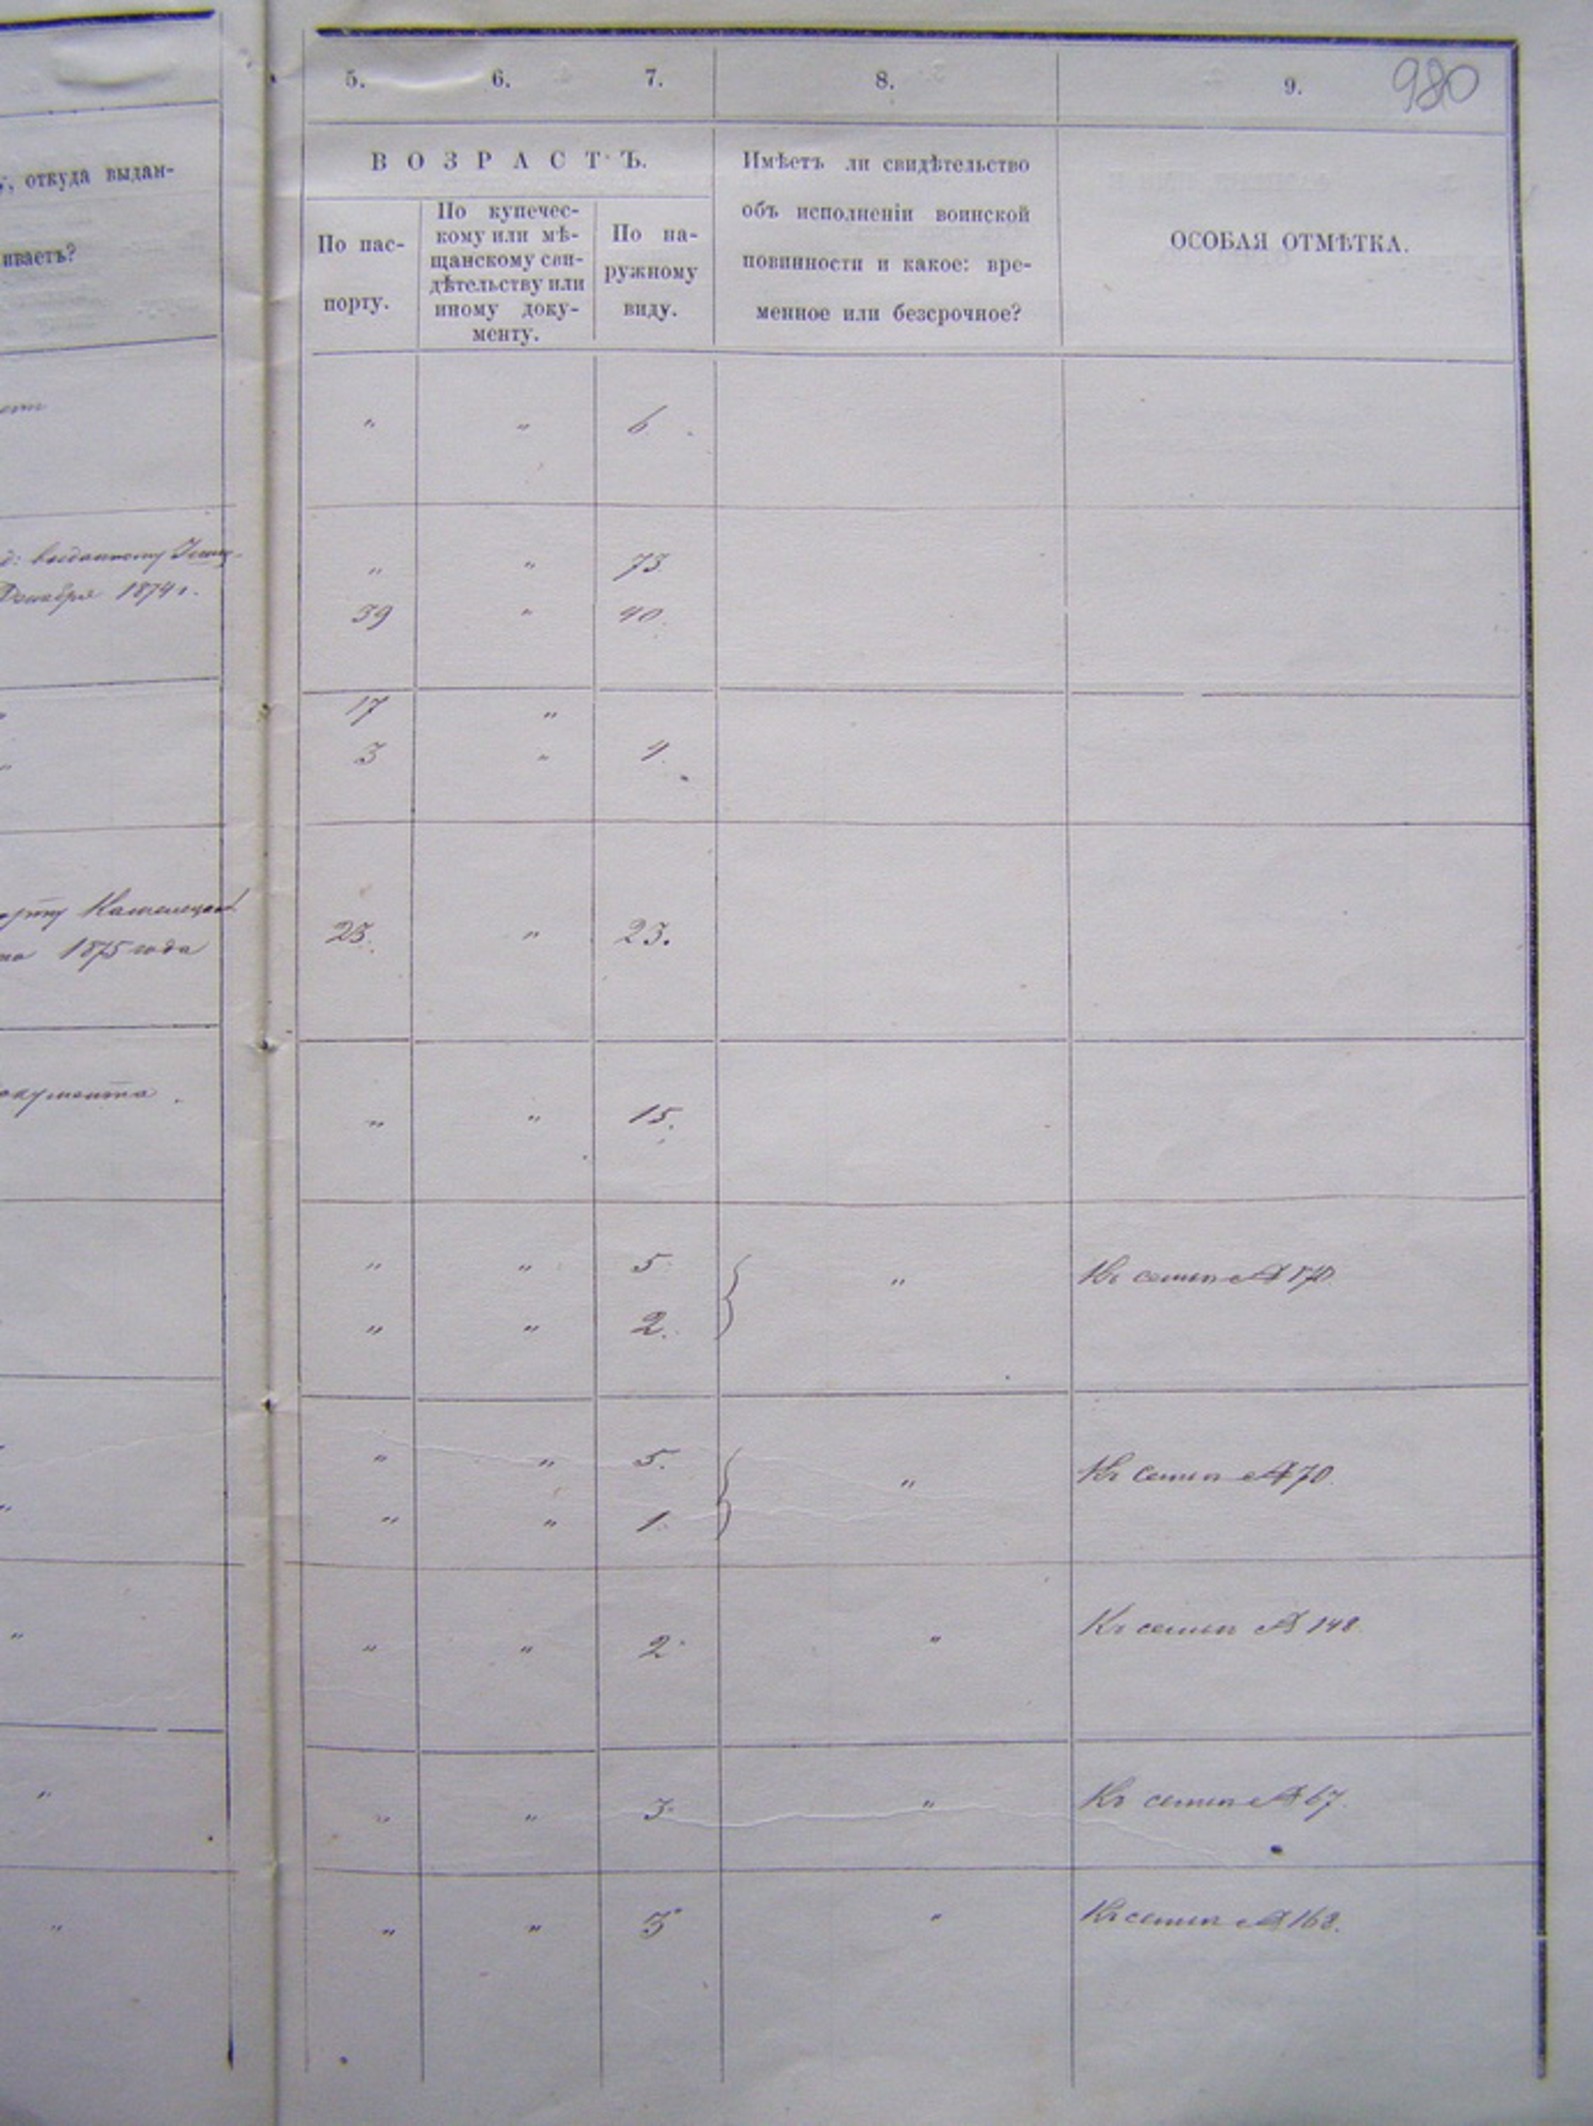 980
5. 6. 7. 8. 9.
откуда выдан-
иваетъ?
ВОЗРАСТЪ.
По пас-
порту.
По купечес-
кому или мѣ-
щанскому сви-
дѣтельству или
иному доку-
менту.
По на-
ружному
виду.
Имѣетъ ли свидѣтельство
объ исполненіи воинской
повинности и какое: вре-
менное или безсрочное?
ОСОБАЯ ОТМѢТКА.
" " 6
выданному
" " 73
Декабря 1874 г.
39 " 40
17 "
3 " 4
1875 года
23. " 23.
" " 15.
" " 5 " Къ семьѣ №
" " 2.
" " 5. " Къ семьѣ № 70.
" " 1.
" " " 2 " Къ семьѣ № 148.
" " " 3 " Къ семьѣ № 67.
" " " 3 " Къ семьѣ № 168.